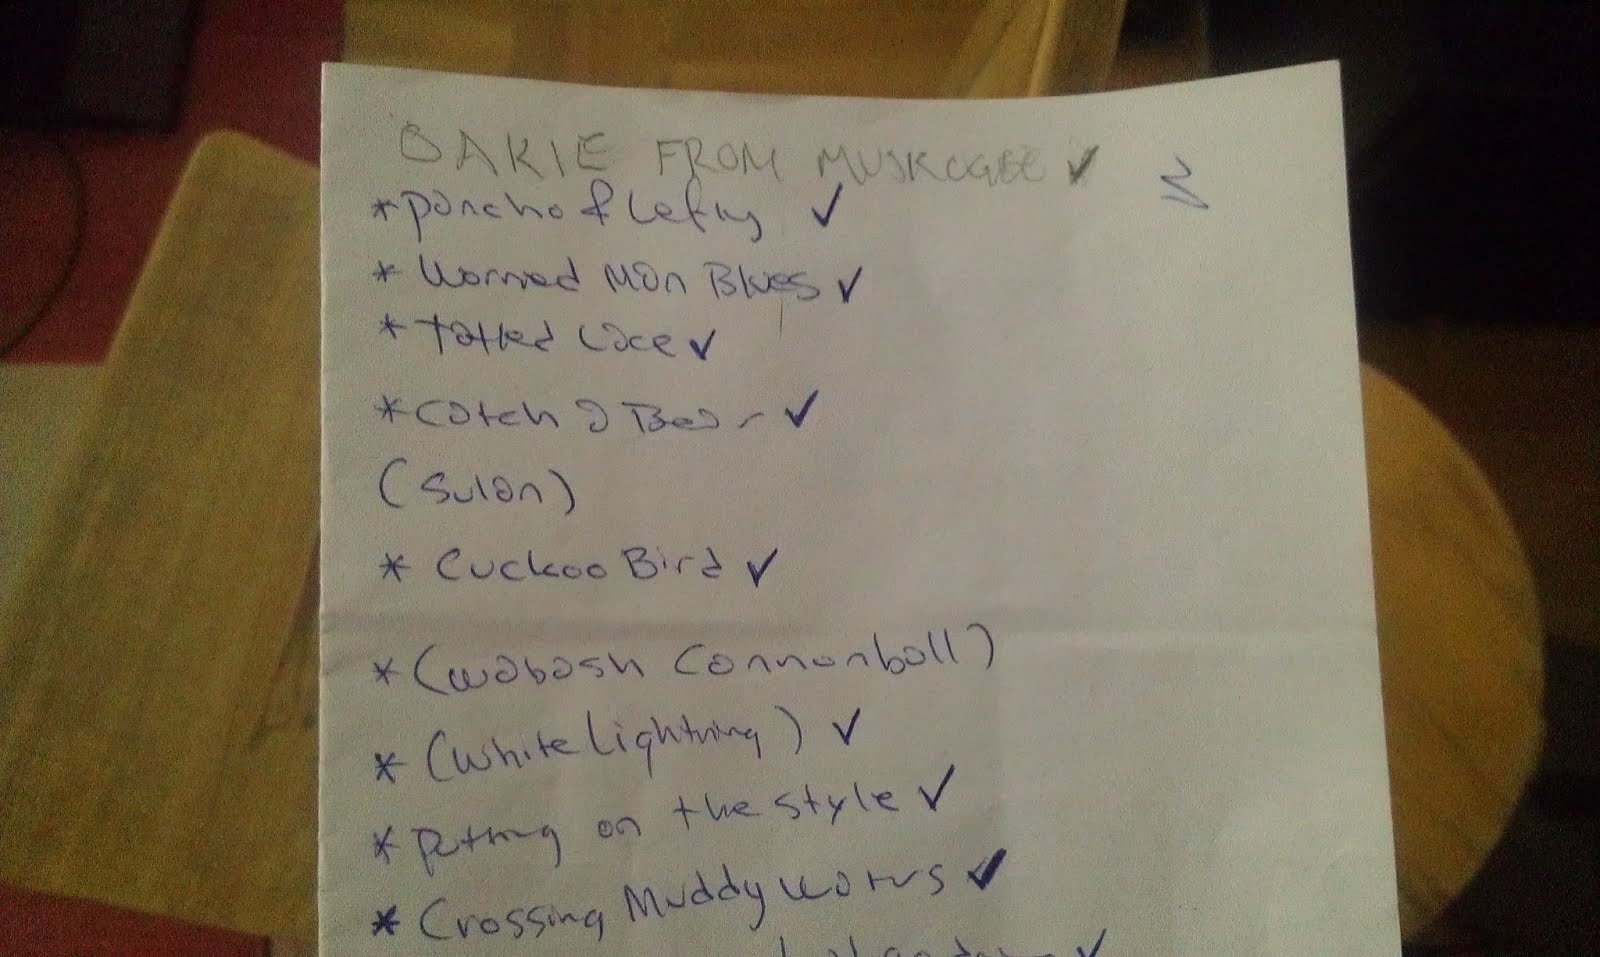 OAKIE FROM MUSKOGEE ✓
* Poncho & Lefty ✓
* Worried Man Blues ✓
* Tatted Lace ✓
* Catch a Bear ✓
(Sulan)
* Cuckoo Bird ✓
* (Wabash Cannonball)
* (White Lightning) ✓
* Putting on the Style ✓
* Crossing Muddy Waters ✓